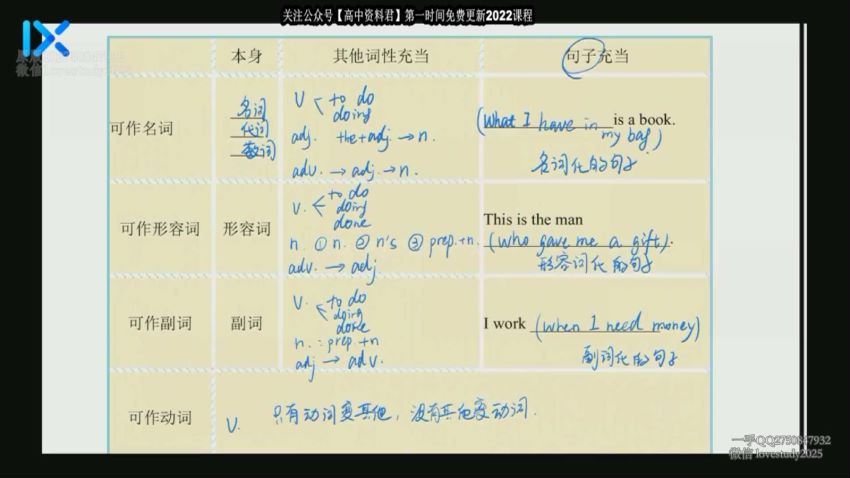 关注公众号【高中资料君】第一时间免费更新2022课程
微信 lovestudy2025
本身 其他词性充当 句子充当
可作名词
名词
代词
数词
V to do
doing
adj. the+adj. → n.
adv. → adj. → n.
(What I have in my bag) is a book.
名词化的句子
可作形容词 形容词
v. to do
doing
done
n. ① n. ② n's ③ prep.+n.
adv. → adj.
This is the man
(who gave me a gift).
形容词化的句子
可作副词 副词
v. to do
doing
done
n. : prep.+n
adj → adv.
I work (when I need money)
副词化的句子
可作动词 V. 只有动词变其他，没有其他变动词.
一手QQ2730847932
微信 lovestudy2025